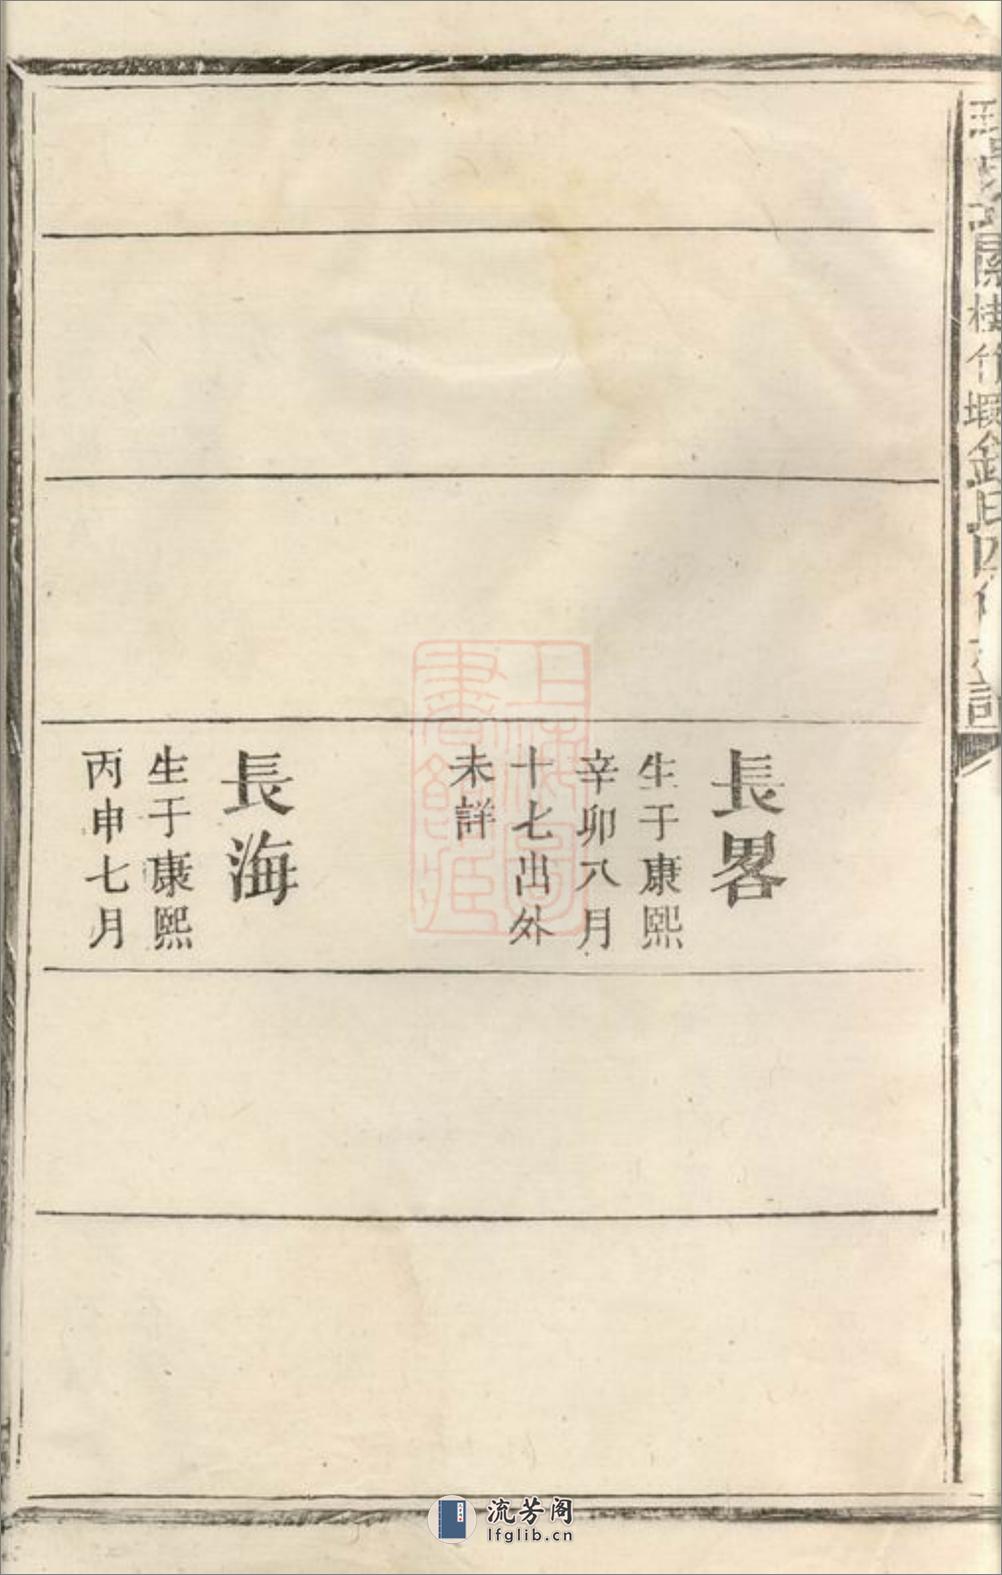 長畧
生于康熙
辛卯八月
十七出外
未詳
長海
生于康熙
丙申七月
上海圖
書館藏
流芳阁
lfglib.cn